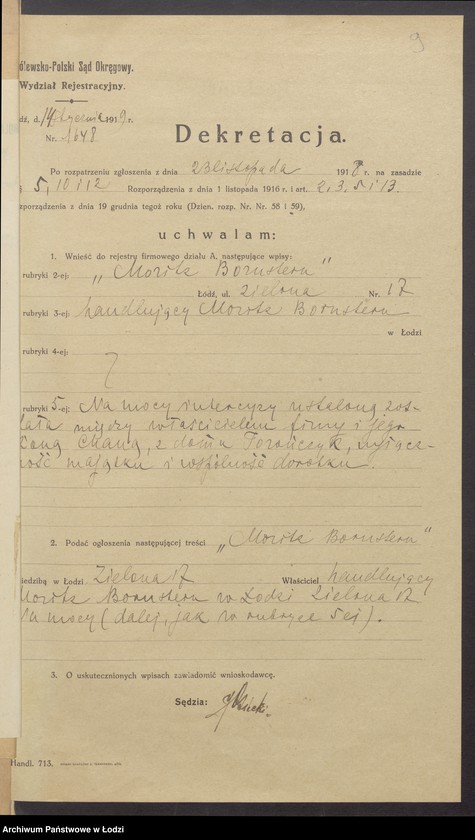 9
ólewsko-Polski Sąd Okręgowy.
Wydział Rejestracyjny.
dź, d. 14 stycznia 1919 r.
Nr. 1648
Dekretacja.
Po rozpatrzeniu zgłoszenia z dnia 23 listopada 1918 r. na zasadzie
5, 10 i 12 Rozporządzenia z dnia 1 listopada 1916 r. i art. 2, 3, 5 i 13.
zporządzenia z dnia 19 grudnia tegoż roku (Dzien. rozp. Nr. Nr. 58 i 59),
uchwalam:
1. Wnieść do rejestru firmowego działu A, następujące wpisy:
rubryki 2-ej: „Moritz Bornstein"
Łódź, ul. Zielona Nr. 17
rubryki 3-ej: handlujący Moritz Bornstein
w Łodzi
rubryki 4-ej:
rubryki 5-ej: Na mocy intercyzy ustaloną zos-
tała między właścicielem firmy i jego
żoną Chaną, z domu Torończyk, wyłącz-
ność majątku i wspólność dorobku.
2. Podać ogłoszenia następującej treści „Moritz Bornstein"
iedzibą w Łodzi Zielona 17 Właściciel handlujący
Moritz Bornstein w Łodzi Zielona 17
Na mocy (dalej, jak w rubryce 5ej).
3. O uskutecznionych wpisach zawiadomić wnioskodawcę.
Sędzia:
Handl. 713.
Archiwum Państwowe w Łodzi